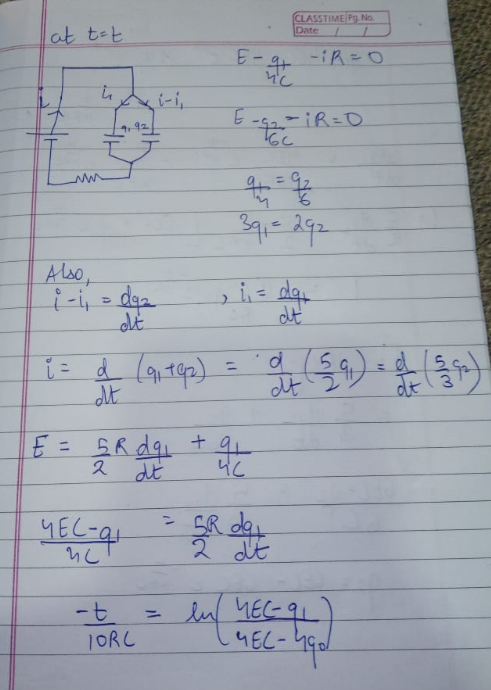 CLASSTIME Pg. No.
Date / /
at t=t
E - q1/4C - iR = 0
i
i1
i-i1
q1 q2
E - q2/6C - iR = 0
q1/4 = q2/6
3q1 = 2q2
Also,
i - i1 = dq2/dt , i1 = dq1/dt
i = d/dt (q1+q2) = d/dt (5/2 q1) = d/dt (5/3 q2)
E = 5/2 R dq1/dt + q1/4C
4EC-q1/4C = 5R/2 dq1/dt
-t/10RC = ln(4EC-q1/4EC-4q0)